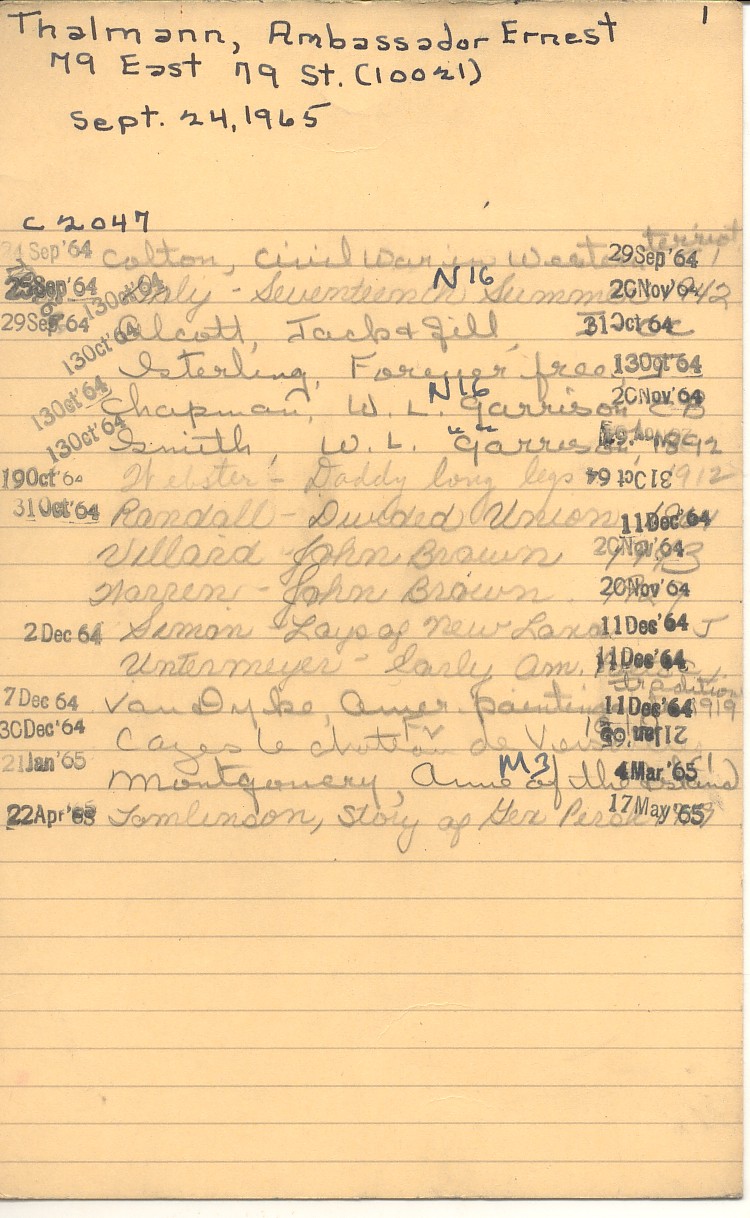 1
Thalmann, Ambassador Ernest
79 East 79 St. (10021)
Sept. 24, 1965
C 2047
Sep'64 Colton, Civil War in Western territ 29Sep'64
25Sep'64 - Seventeenth Summer N16 20Nov'64 1942
29Sep'64 Alcott, Jack & Jill 31Oct 64
130ct'64 Isterling, Forever free 130ct'64
130ct'64 Chapman, W. L. Garrison N16 20Nov'64
130ct'64 Smith, W. L. "Garrison" 1892
19Oct'64 Webster - Daddy long legs 31Oct 64 1912
31Oct'64 Randall - Divided Union 11Dec'64
Villard John Brown 20Nov'64
Warren - John Brown 20Nov'64
2Dec 64 Simon - Lays of New Land 11Dec'64 J
Untermeyer - Early Am. 11Dec'64
tradition
7Dec 64 Van Dyke, Amer painting 11Dec'64 1919
30Dec'64 Cazes Le chateau de Vers 21Jan'65
21Jan'65 Montgomery, Anne of the Island M3 4Mar'65
22Apr'65 Tomlinson, Story of Gen Persh 17May'65